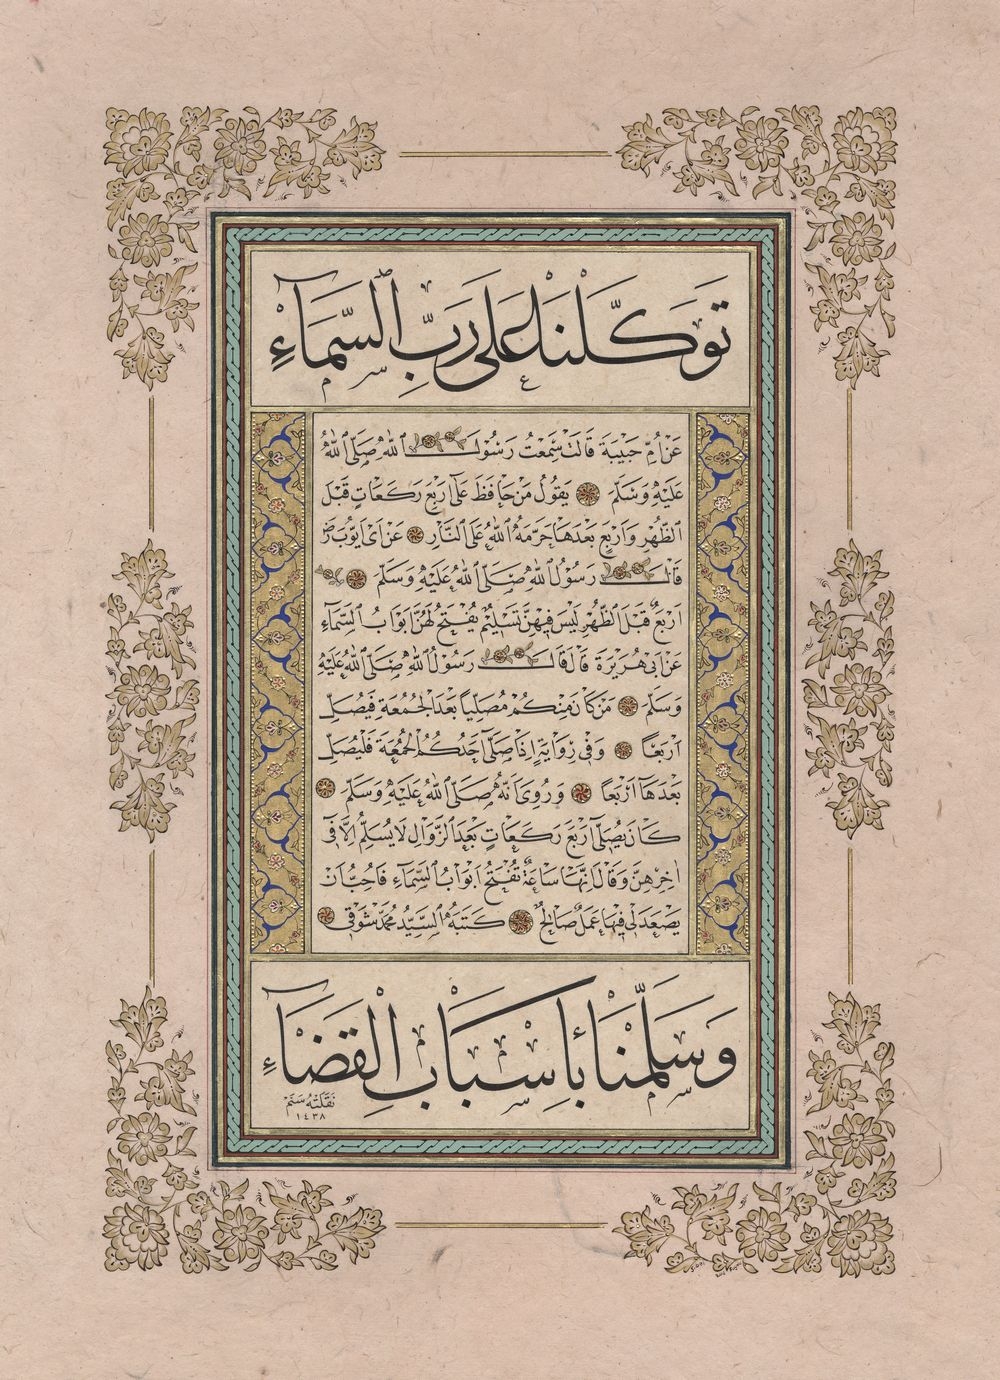 تَوَكَّلْنَا عَلَى رَبِّ السَّمَآءِ
عَنْ اُمِّ حَبِيْبَةَ قَالَتْ سَمِعْتُ رَسُوْلَ اللّٰهِ صَلَّى اللّٰهُ
عَلَيْهِ وَسَلَّمَ يَقُوْلُ مَنْ حَافَظَ عَلٰى اَرْبَعِ رَكَعَاتٍ قَبْلَ
الظُّهْرِ وَاَرْبَعٍ بَعْدَهَا حَرَّمَهُ اللّٰهُ عَلَى النَّارِ عَنْ اَبِى اَيُّوْبَ رَضَ
قَالَ رَسُوْلُ اللّٰهِ صَلَّى اللّٰهُ عَلَيْهِ وَسَلَّمَ
اَرْبَعٌ قَبْلَ الظُّهْرِ لَيْسَ فِيْهِنَّ تَسْلِيْمٌ يُفْتَحُ لَهُنَّ اَبْوَابُ السَّمَآءِ
عَنْ اَبِى هُرَيْرَةَ قَالَ قَالَ رَسُوْلُ اللّٰهِ صَلَّى اللّٰهُ عَلَيْهِ
وَسَلَّمَ مَنْ كَانَ مِنْكُمْ مُصَلِّيًا بَعْدَ الْجُمُعَةِ فَيُصَلِّ
اَرْبَعًا وَفِى رِوَايَةٍ اِذَا صَلَّى اَحَدُكُمُ الْجُمُعَةَ فَلْيُصَلِّ
بَعْدَهَا اَرْبَعًا وَرُوِىَ اَنَّهُ صَلَّى اللّٰهُ عَلَيْهِ وَسَلَّمَ
كَانَ يُصَلِّى اَرْبَعَ رَكَعَاتٍ بَعْدَ الزَّوَالِ لَا يُسَلِّمُ اِلَّا فِى
اٰخِرِهِنَّ وَقَالَ اِنَّهَا سَاعَةٌ تُفْتَحُ اَبْوَابُ السَّمَآءِ فَاُحِبُّ اَنْ
يَصْعَدَ لِى فِيْهَا عَمَلٌ صَالِحٌ كَتَبَهُ السَّيِّدُ مُحَمَّدْ شَوْقِى
وَسَلَّمْنَا بِاَسْبَابِ الْقَضَآءِ
نَقَلَتْهُ سَنَمْ
١٤٣٨